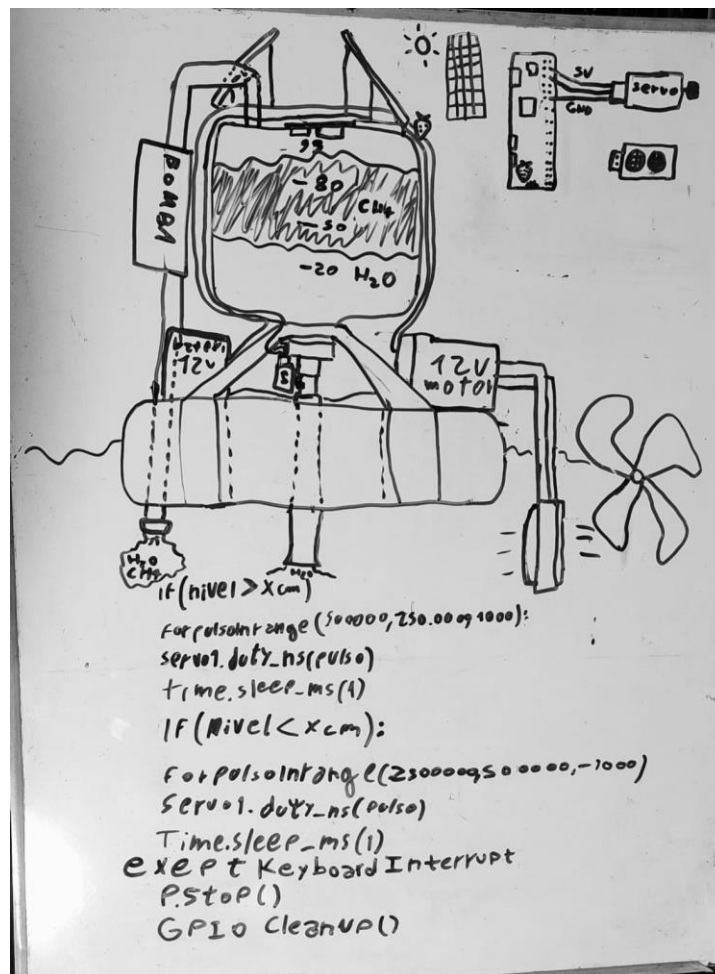 5V
servo
GND
BOMBA
95
-80
CH4
-50
-20 H2O
12V
12V
motor
S
H2O
CH4
H2O
if(nivel>xcm)
for pulso in range(500000,250.000,1000):
servo1.duty_ns(pulso)
time.sleep_ms(1)
IF(Nivel<xcm):
For pulso in range(2500000,500000,-1000)
servo1.duty_ns(pulso)
Time.sleep_ms(1)
exept Keyboard Interrupt
P.StoP()
GPIO Cleanup()